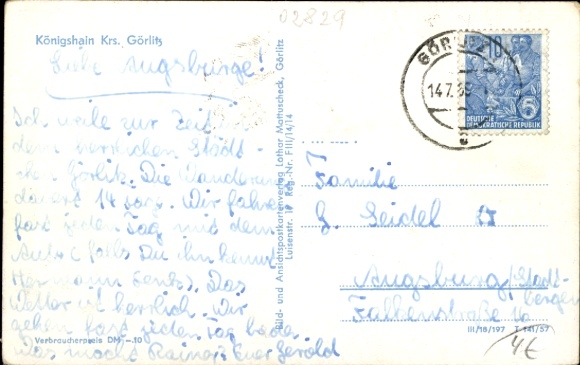 02829
Königshain Krs. Görlitz
Liebe Augsburger!
Ich weile zur Zeit in
dem herrlichen Städt-
chen Görlitz. Die
dauert 14 Tage. Wir fahren
fast jeden Tag mit dem
Auto (falls Du ihn kennst
Hermann). Das
Wetter ist herrlich. Wir
gehen fast jeden Tag baden.
Was macht Rainer? Euer Gerold
Verbraucherpreis DM -.10
Bild- und Ansichtspostkartenverlag Lothar Mattuscheck, Görlitz
Luisenstr. 19 Reg.-Nr. FIII/14/14
GÖRLITZ
14.7.
10
5
DEUTSCHE
DEMOKRATISCHE REPUBLIK
Familie
G. Seidel
Augsburg/Stadt-
bergen
Falkenstraße 10
III/18/197 T 141/57
4€